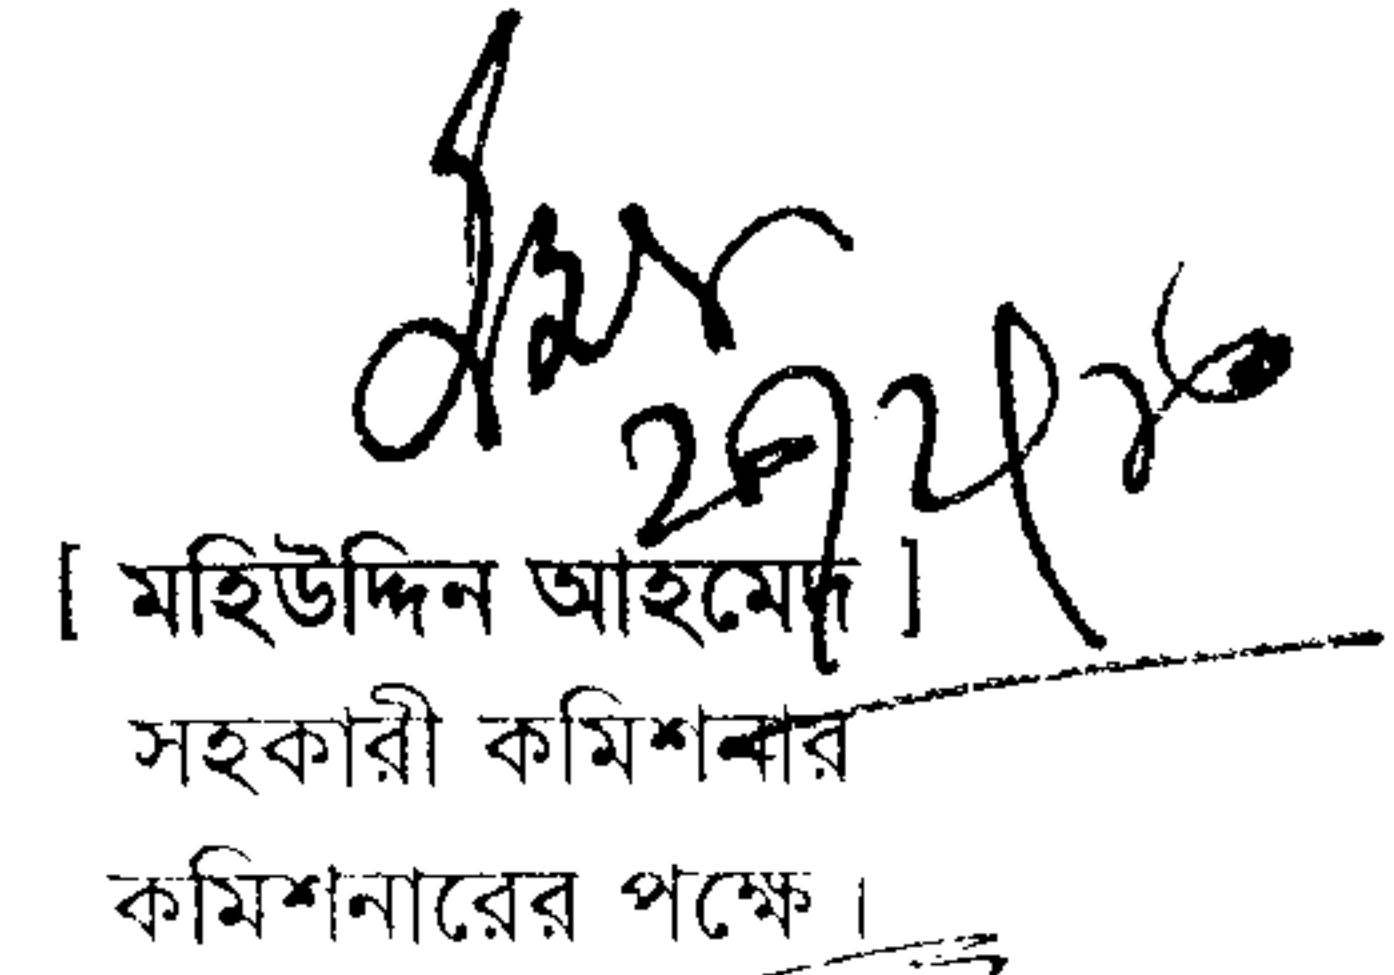 [ মহিউদ্দিন আহমেদ ]
সহকারী কমিশনার
কমিশনারের পক্ষে ।